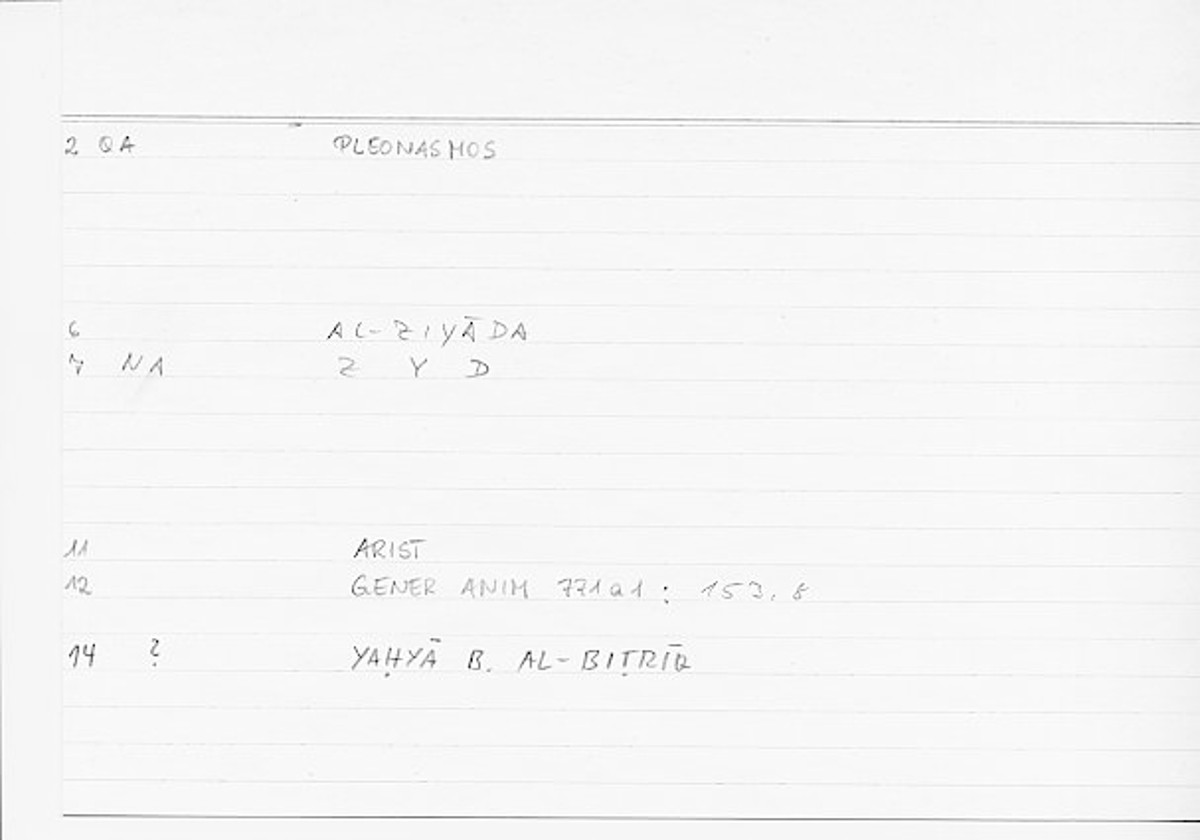 2 QA PLEONASMOS
6 AL-ZIYĀDA
7 NA Z Y D
11 ARIST
12 GENER ANIM 771a1 : 153, 8
14 ? YAḤYĀ B. AL-BIṬRĪQ